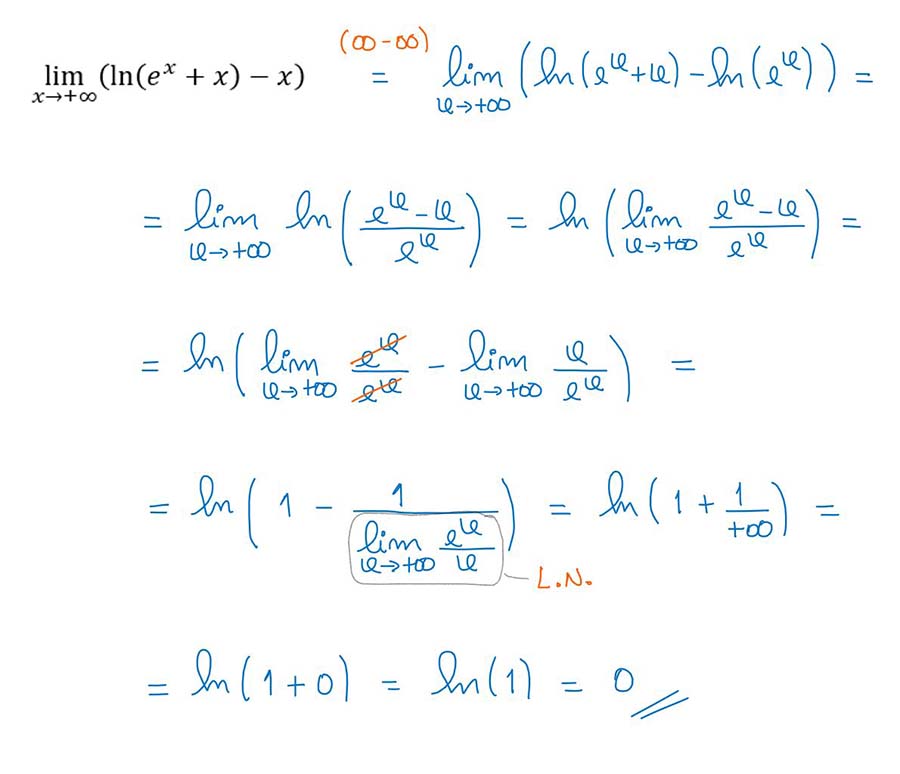 lim x→+∞ (ln(e^x + x) − x) (∞−∞) = lim x→+∞ (ln(e^x+x) − ln(e^x)) =
= lim x→+∞ ln((e^x − x)/e^x) = ln(lim x→+∞ (e^x − x)/e^x) =
= ln(lim x→+∞ e^x/e^x − lim x→+∞ x/e^x) =
= ln(1 − 1/(lim x→+∞ e^x/x)) = ln(1 + 1/+∞) =
L.N.
= ln(1+0) = ln(1) = 0